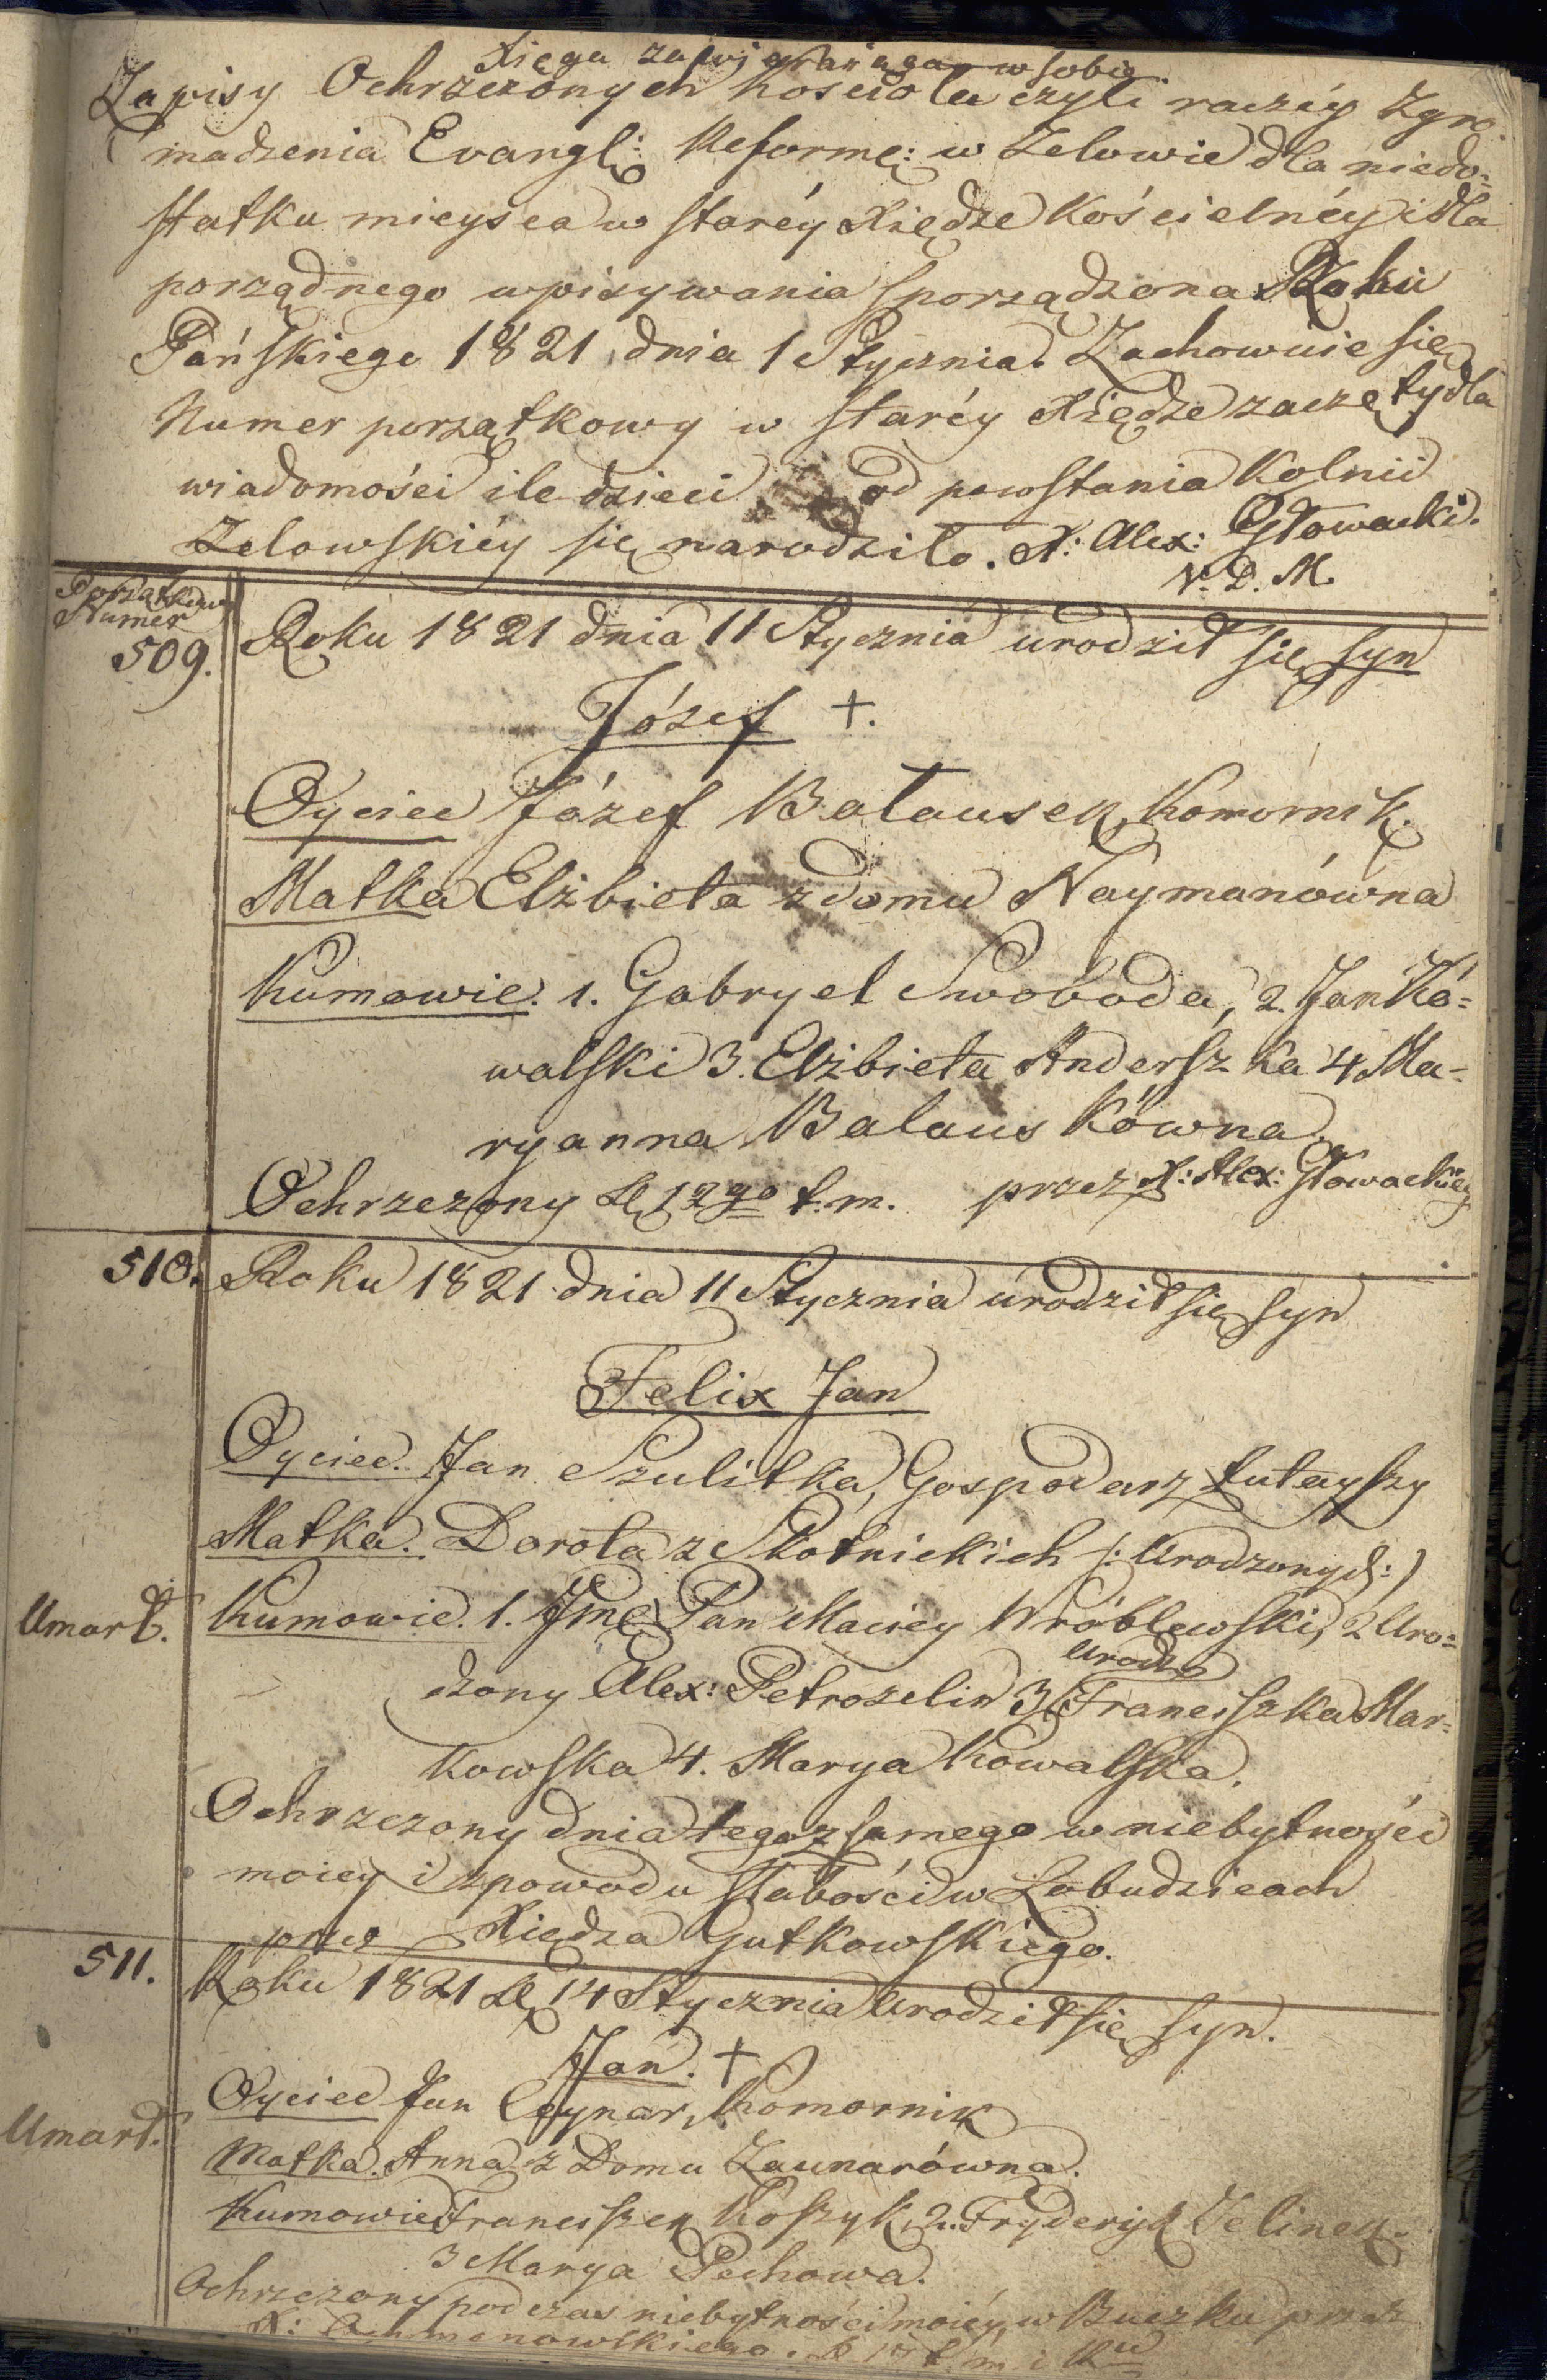 Xięga zawieraiąca w sobie
Zapisy Ochrzczonych Kościoła czyli raczéy Zgro-
madzenia Evangl: Reforme: w Zelowie dla niedo=
statku mieysca w staréy Xiędze Kościelnéy i dla
porządnego wpisywania sporządzona Roku
Pańskiego 1821 dnia 1 Stycznia. Zachowuie się
Numer porządkowy w staréy Xiędze zaczęty dla
wiadomości ile dzieci od powstania Kolnii
Zelowskiéy się narodziło. X: Alex: Głowacki.
V. D. M.
Porządkowy
Numer
509. Roku 1821 dnia 11 Stycznia urodził się syn
Józef +.
Oyciec Józef Bałausek, Komornik.
Matka Elżbieta z domu Naymanówna
Kumowie. 1. Gabryel Swoboda, 2. Jan Ko=
walski 3. Elżbieta Anderszka 4 Ma-
ryanna Balauskówna
Ochrzczony d. 12go t. m. przez X: Alex: Głowackiey
510. Roku 1821 dnia 11 Stycznia urodził się syn
Felix Jan
Oyciec. Jan Szulitka, Gospodarz tutayszy
Matka. Dorota z Skotnickich /: Urodzonych :/
Umart. Kumowie. 1. Jme Pan Maciéy Wróblewski, 2 Uro=
dzony Alex: Petrozelin 3 Urodz Franciszka Mar=
kowska 4. Marya Kowalska.
Ochrzczony dnia tegoż samego w niebytności
moiey i z powodu słabości w Łobudzicach
przez Xiędza Gutkowskiego.
511. Roku 1821 d. 14 Stycznia urodził się syn.
Jan. +
Oyciec Jan Ceynar, Komornik
Umart. Matka. Anna z Domu Zaunarówna.
Kumowie Franciszek Koszyk, 2. Fryderyk Jelinek.
3 Marya Pechowa.
Ochrzczony podczas niebytności moiéy w Buczku przez
X: t. m. i R